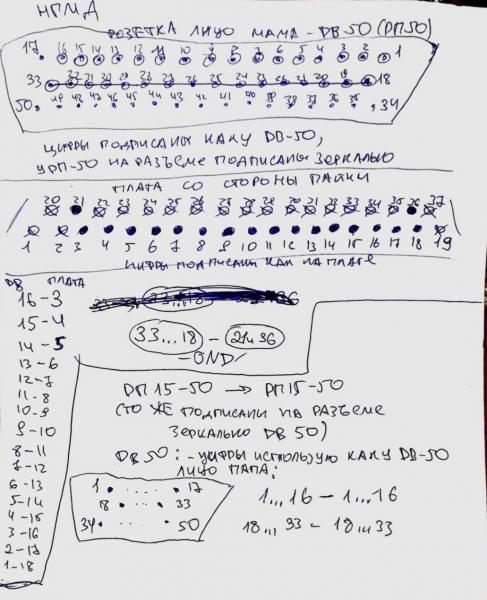 НГМД
РОЗЕТКА ЛИЦО МАМА - DB-50 (РП50)
17 16 15 14 13 12 11 10 9 8 7 6 5 4 3 2 1
33 32 31 30 29 28 27 26 25 24 23 22 21 20 19 18
50 49 48 47 46 45 44 43 42 41 40 39 38 37 36 35 34
ЦИФРЫ ПОДПИСАНЫ КАК У DB-50,
У РП-50 НА РАЗЪЕМЕ ПОДПИСАНЫ ЗЕРКАЛЬНО
ПЛАТА СО СТОРОНЫ ПАЙКИ
20 21 22 23 24 25 26 27 28 29 30 31 32 33 34 35 36 37
1 2 3 4 5 6 7 8 9 10 11 12 13 14 15 16 17 18 19
ЦИФРЫ ПОДПИСАНЫ КАК НА ПЛАТЕ
DB ПЛАТА
16-3
15-4
14-5
13-6
12-7
11-8
10-9
9-10
8-11
7-12
6-13
5-14
4-15
3-16
2-17
1-18
33...18 - 21и36
-GND
РП15-50 → РП15-50
(ТОЖЕ ПОДПИСАН НА РАЗЪЕМЕ
ЗЕРКАЛЬНО DB 50)
DB50: - ЦИФРЫ ИСПОЛЬЗУЮ КАК У DB-50
ЛИЦО ПАПА:
1 ... 17
18 ... 33
34 ... 50
1...16 - 1...16
18...33 - 18...33